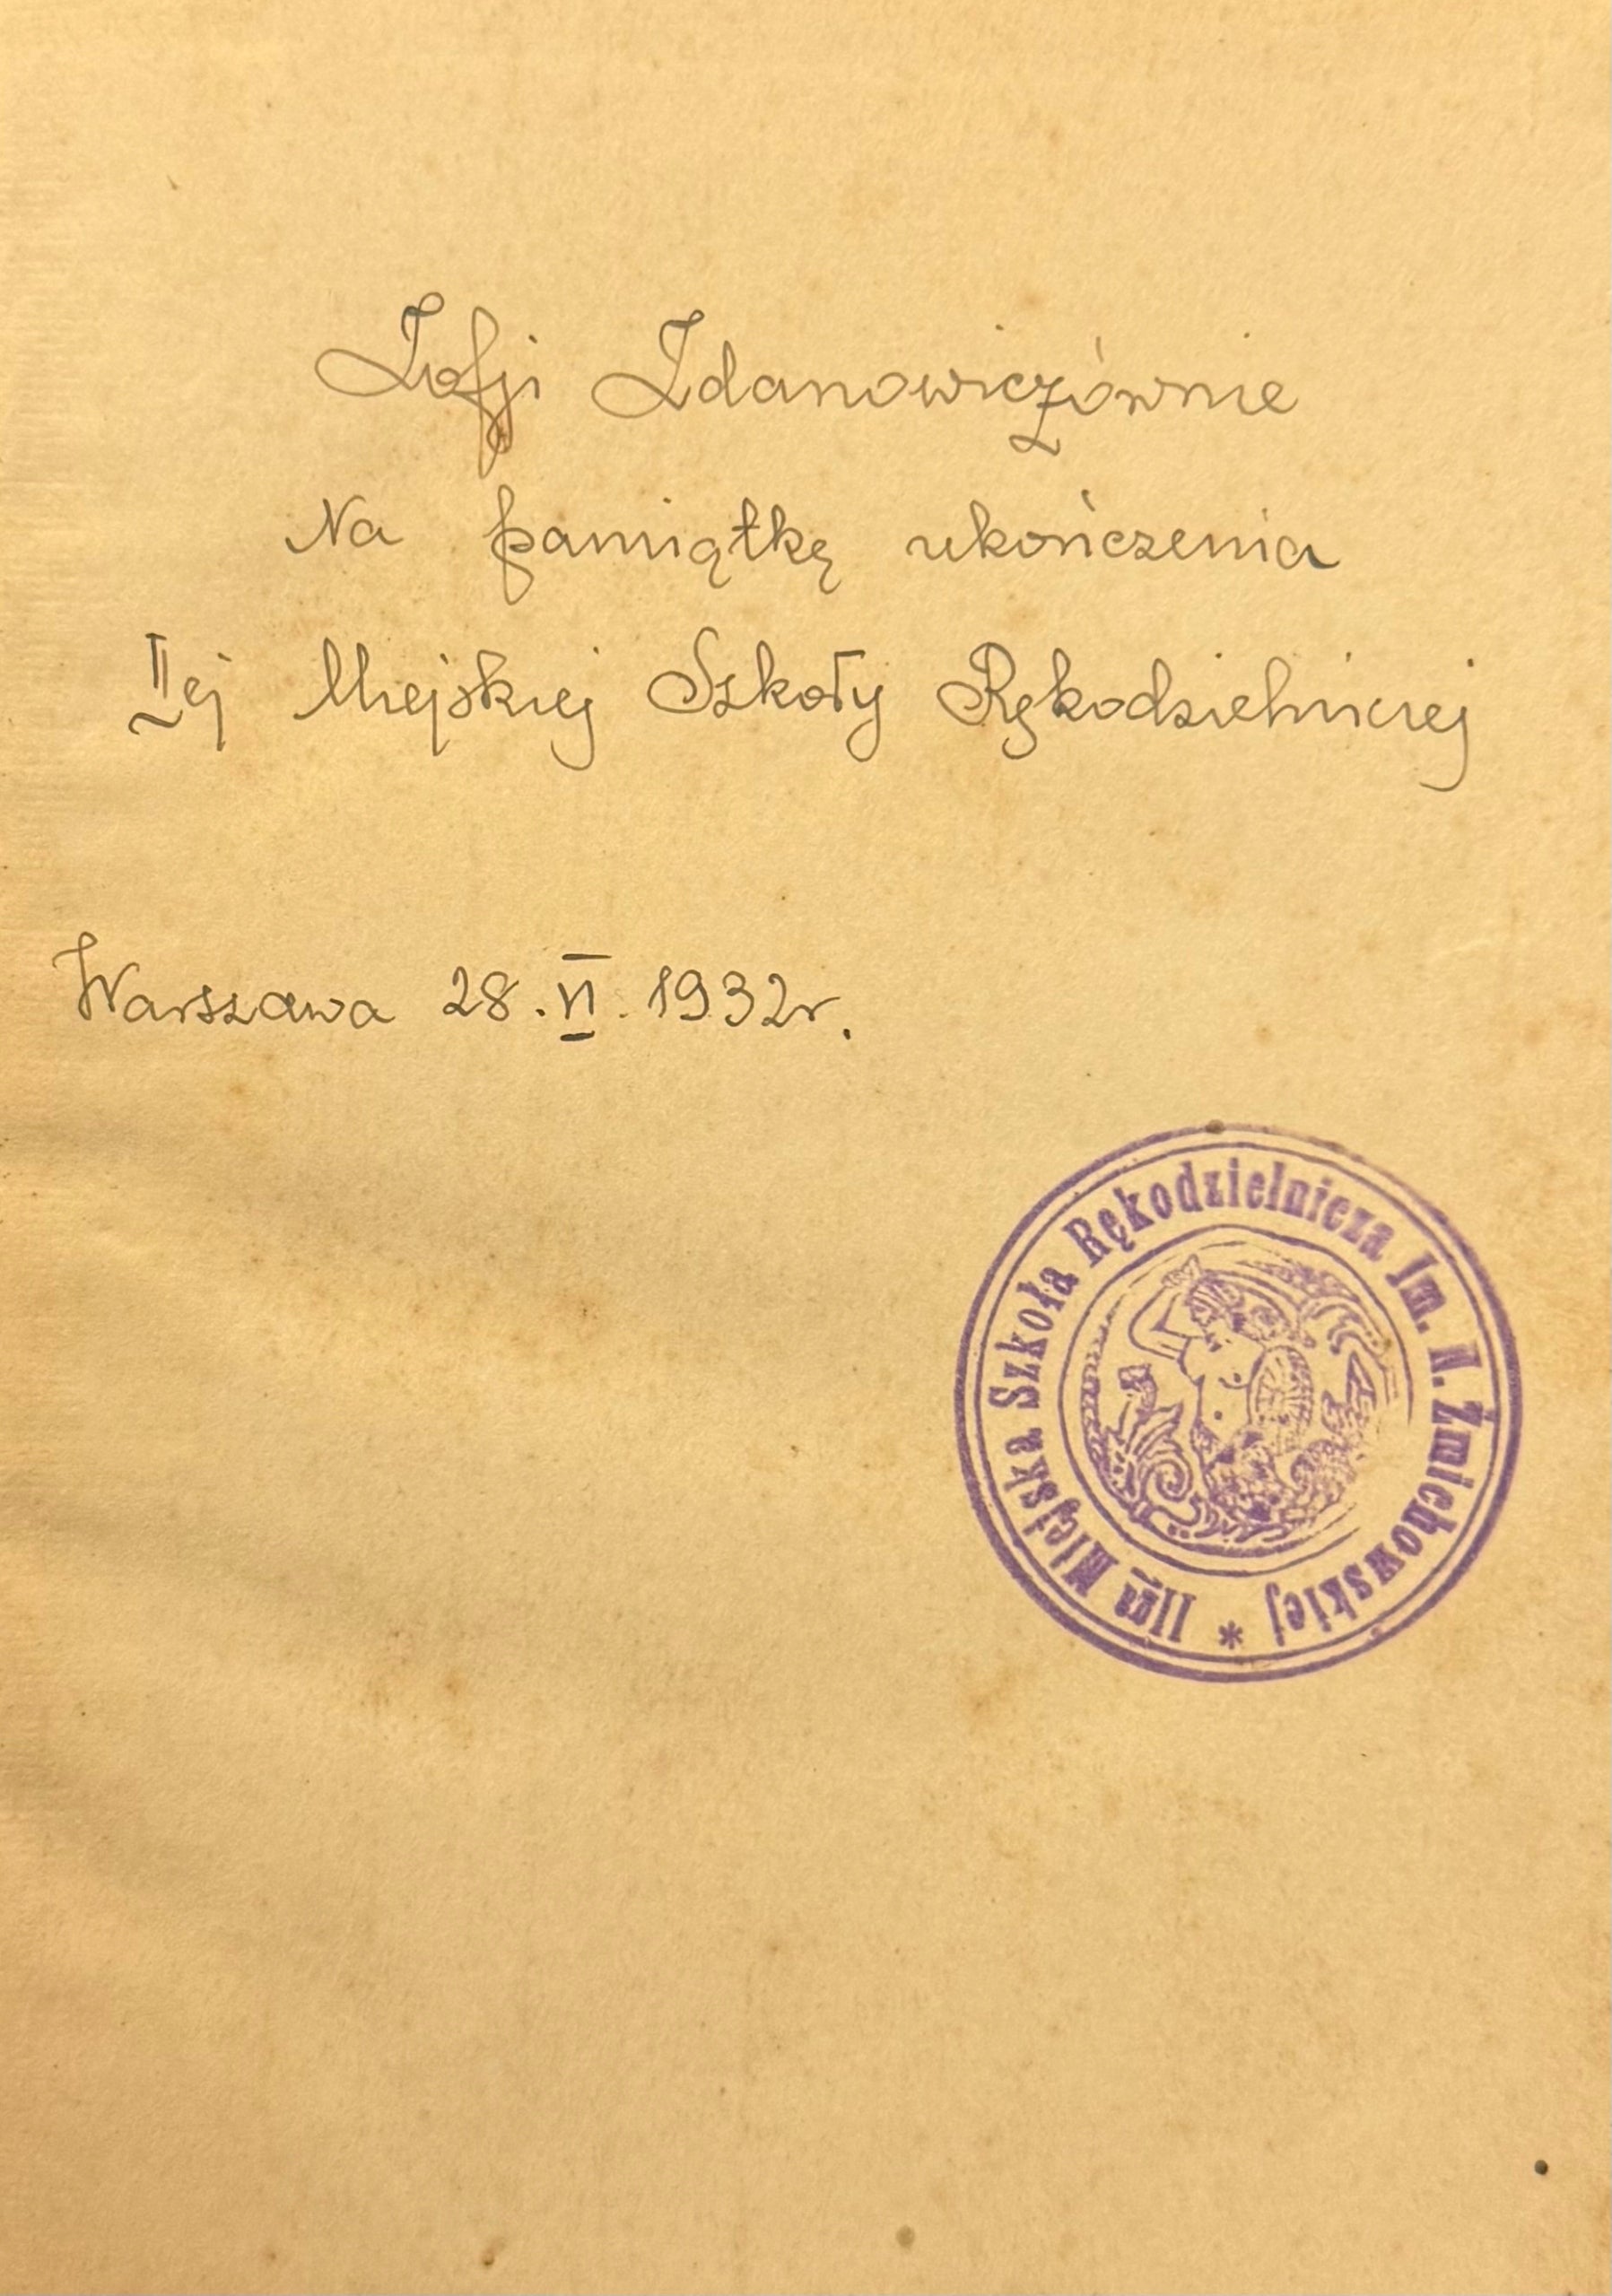 Zofji Zdanowiczównie
Na pamiątkę ukończenia
II ej Miejskiej Szkoły Rękodzielniczej
Warszawa 28. VI. 1932r.
IIga Miejska Szkoła Rękodzielnicza Im. N. Żmichowskiej *